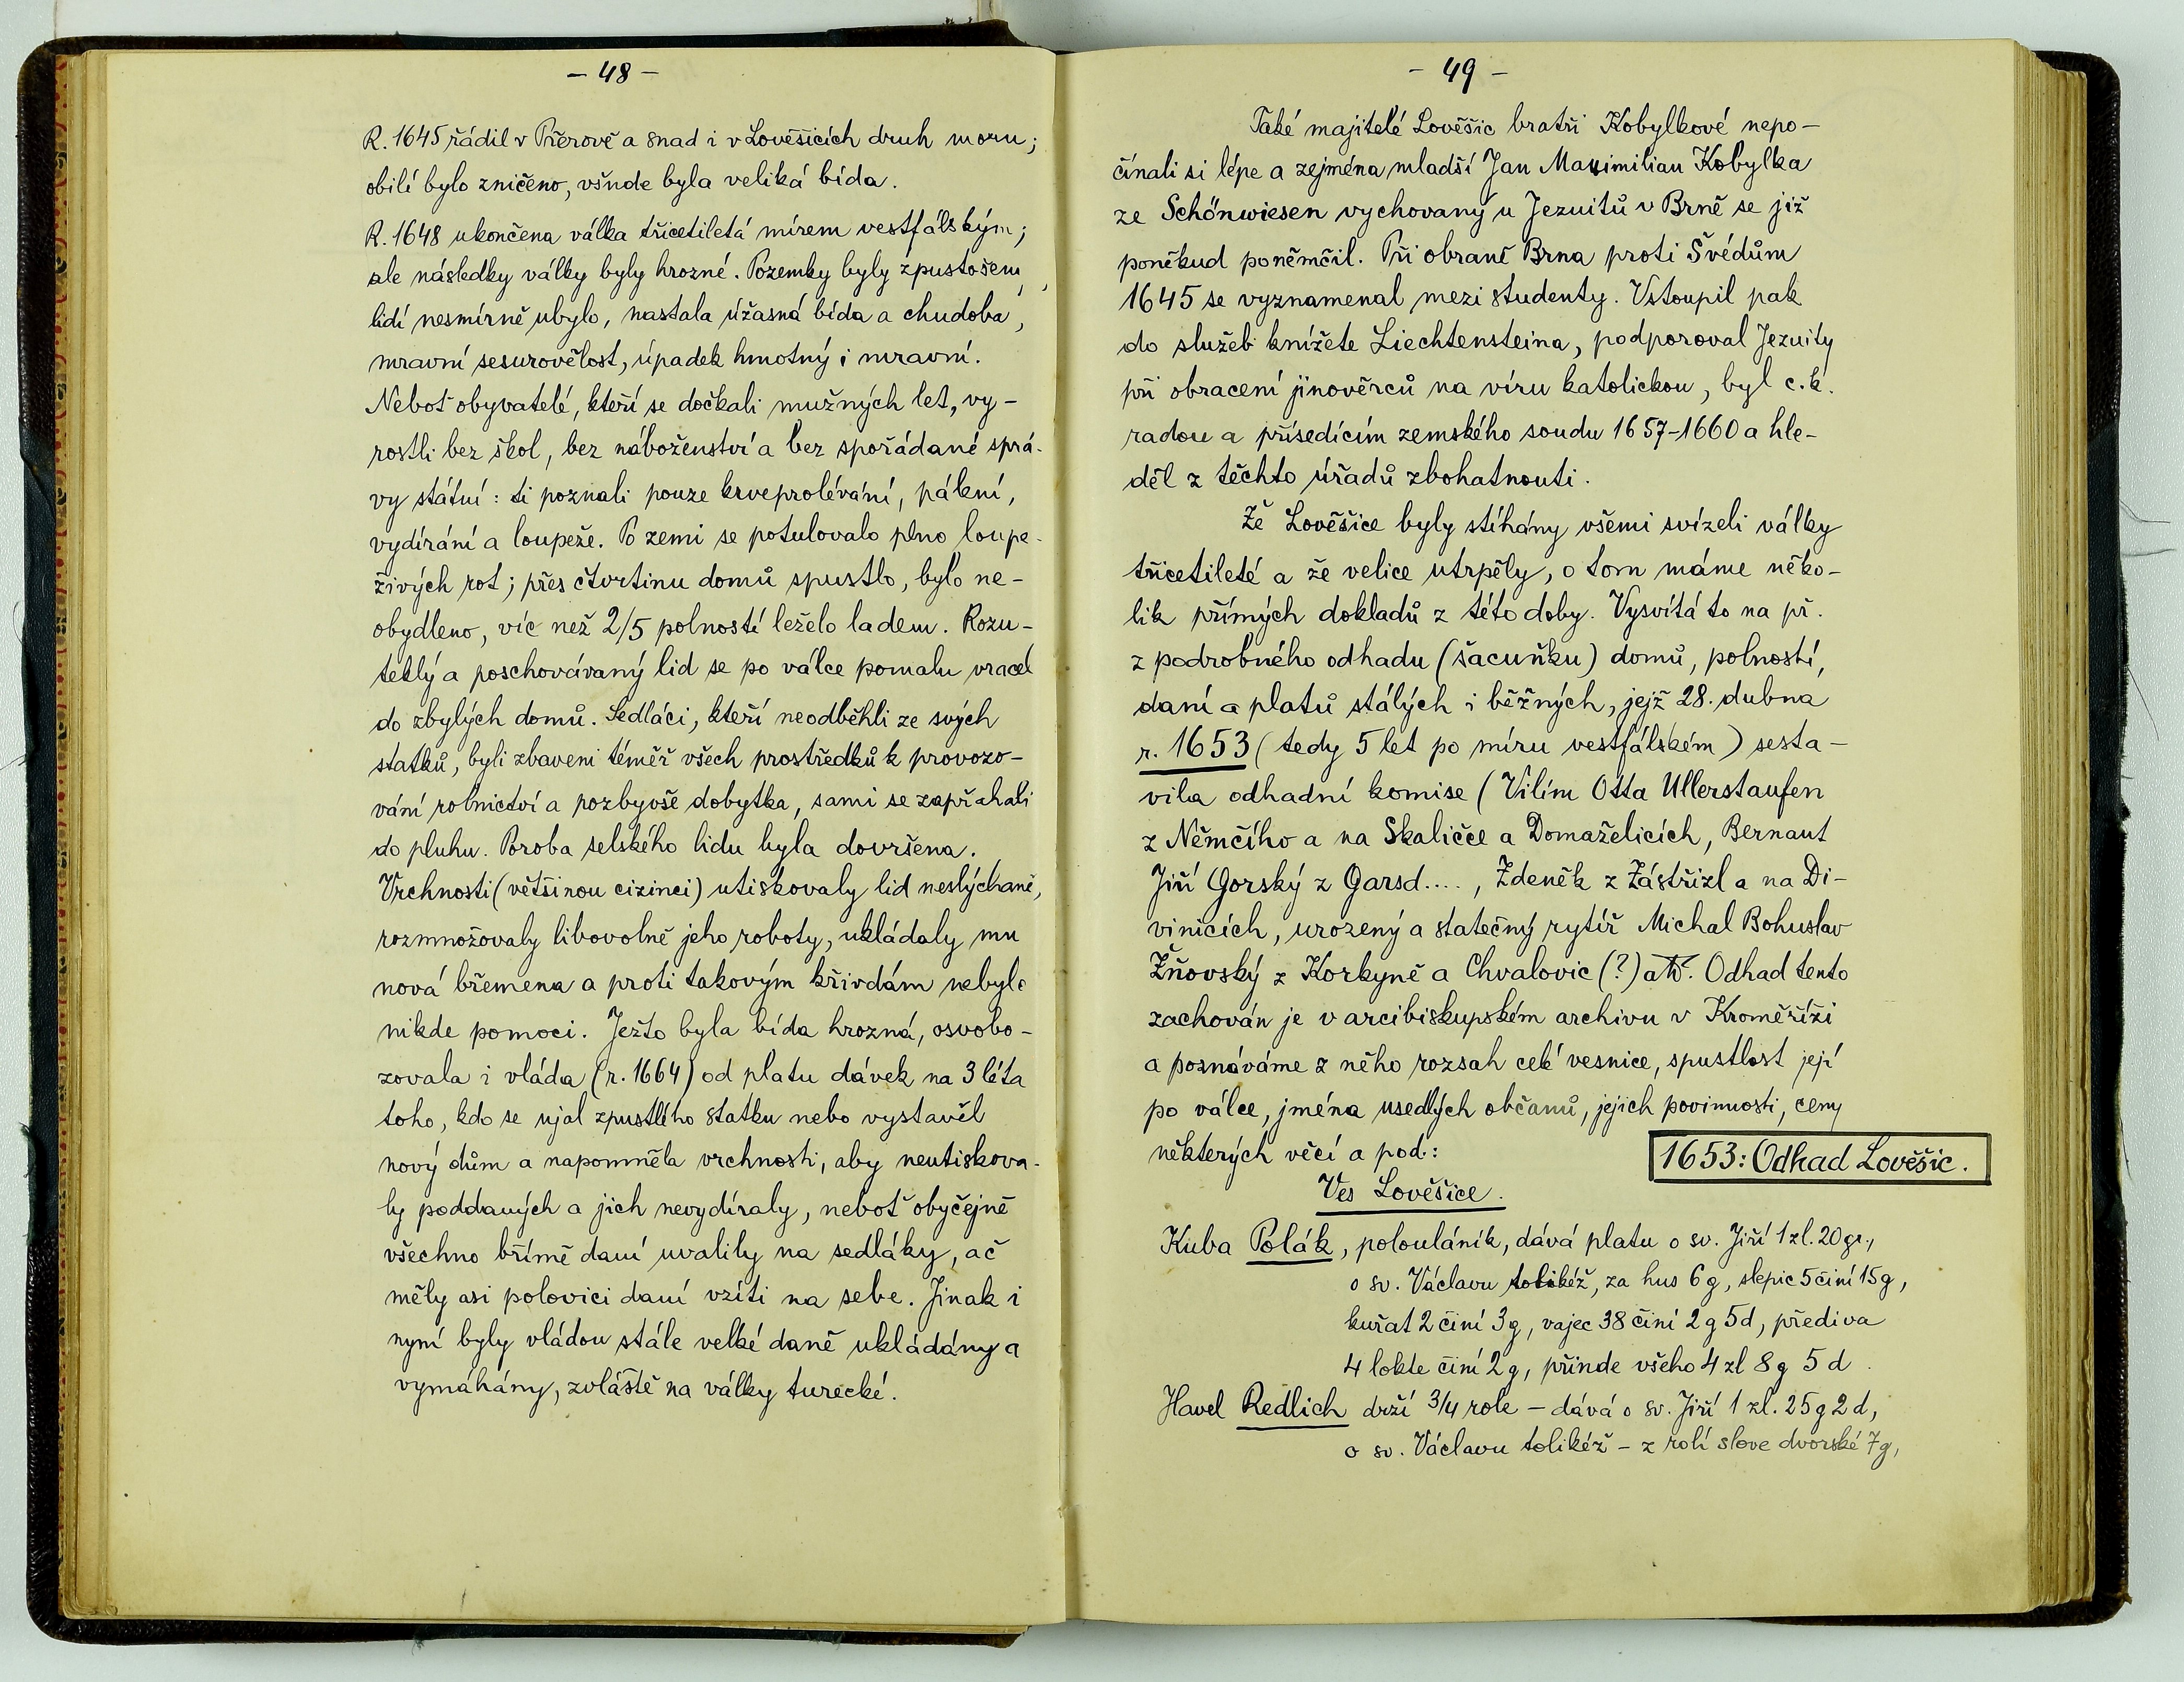 - 48 -
R. 1645 řádil v Přerově a snad i v Lověšicích druh moru;
obilí bylo zničeno, všude byla veliká bída.
R. 1648 ukončena válka třicetiletá mírem vestfálským;
ale následky války byly hrozné. Pozemky byly zpustošeny,
lidí nesmírně ubylo, nastala úžasná bída a chudoba,
mravní sesurovělost, úpadek hmotný i mravní.
Neboť obyvatelé, kteří se dočkali mužných let, vy-
rostli bez škol, bez náboženství a bez spořádané sprá-
vy státní: ti poznali pouze krveprolévání, pálení,
vydírání a loupeže. Po zemi se potulovalo plno loupe-
živých rot; přes čtvrtinu domů spustlo, bylo ne-
obydleno, víc než 2/5 polností leželo ladem. Rozu-
teklý a poschovávaný lid se po válce pomalu vracel
do zbylých domů. Sedláci, kteří neodběhli ze svých
statků, byli zbaveni téměř všech prostředků k provozo-
vání rolnictví a pozbyvše dobytka, sami se zapřahali
do pluhu. Poroba selského lidu byla dovršena.
Vrchnosti (většinou cizinci) utiskovaly lid neslýchaně,
rozmnožovaly libovolně jeho roboty, ukládaly mu
nová břemena a proti takovým křivdám nebylo
nikde pomoci. Ježto byla bída hrozná, osvobo-
zovala i vláda (r. 1664) od platu dávek na 3 léta
toho, kdo se ujal zpustlého statku nebo vystavěl
nový dům a napomněla vrchnosti, aby neutiskova-
ly poddaných a jich nevydíraly, neboť obyčejně
všechno břímě daní uvalily na sedláky, ač
měly asi polovici daní vzíti na sebe. Jinak i
nyní byly vládou stále velké daně ukládány a
vymáhány, zvláště na války turecké.
- 49 -
Také majitelé Lověšic bratři Kobylkové nepo-
čínali si lépe a zejména mladší Jan Maximilian Kobylka
ze Schönwiesen vychovaný u Jezuitů v Brně se již
poněkud poněmčil. Při obraně Brna proti Švédům
1645 se vyznamenal mezi studenty. Vstoupil pak
do služeb knížete Liechtensteina, podporoval Jezuity
při obracení jinověrců na víru katolickou, byl c.k.
radou a přísedícím zemského soudu 1657-1660 a hle-
děl z těchto úřadů zbohatnouti.
Že Lověšice byly stíhány všemi svízeli války
třicetileté a že velice utrpěly, o tom máme něko-
lik přímých dokladů z této doby. Vysvítá to na př.
z podrobného odhadu (šacuňku) domů, polností,
daní a platů stálých i běžných, jejž 28. dubna
r. 1653 (tedy 5 let po míru vestfálském) sesta-
vila odhadní komise (Vilím Otta Ullerstaufen
z Němčího a na Skaličce a Domaželicích, Bernaut
Jiří Gorský z Garsd...., Zdeněk z Zástřizl a na Di-
vinicích, urozený a statečný rytíř Michal Bohuslav
Žňovský z Korkyně a Chvalovic (?) atd. Odhad tento
zachován je v arcibiskupském archivu v Kroměříži
a poznáváme z něho rozsah celé vesnice, spustlost její
po válce, jména usedlých občanů, jejich povinnosti, ceny
některých věcí a pod.:
1653: Odhad Lověšic.
Ves Lověšice.
Kuba Polák, poloulánik, dává platu o sv. Jiří 1 zl. 20 gr.,
o sv. Václavu tolikéž, za hus 6 g, slepic 5 činí 15 g,
kuřat 2 činí 3 g, vajec 38 činí 2 g 5 d, přediva
4 lokte činí 2 g, přinde všeho 4 zl 8 g 5 d.
Havel Redlich drží 3/4 role - dává o sv. Jiří 1 zl. 25 g 2 d,
o sv. Václavu tolikéž - z rolí slove dvorské 7 g,